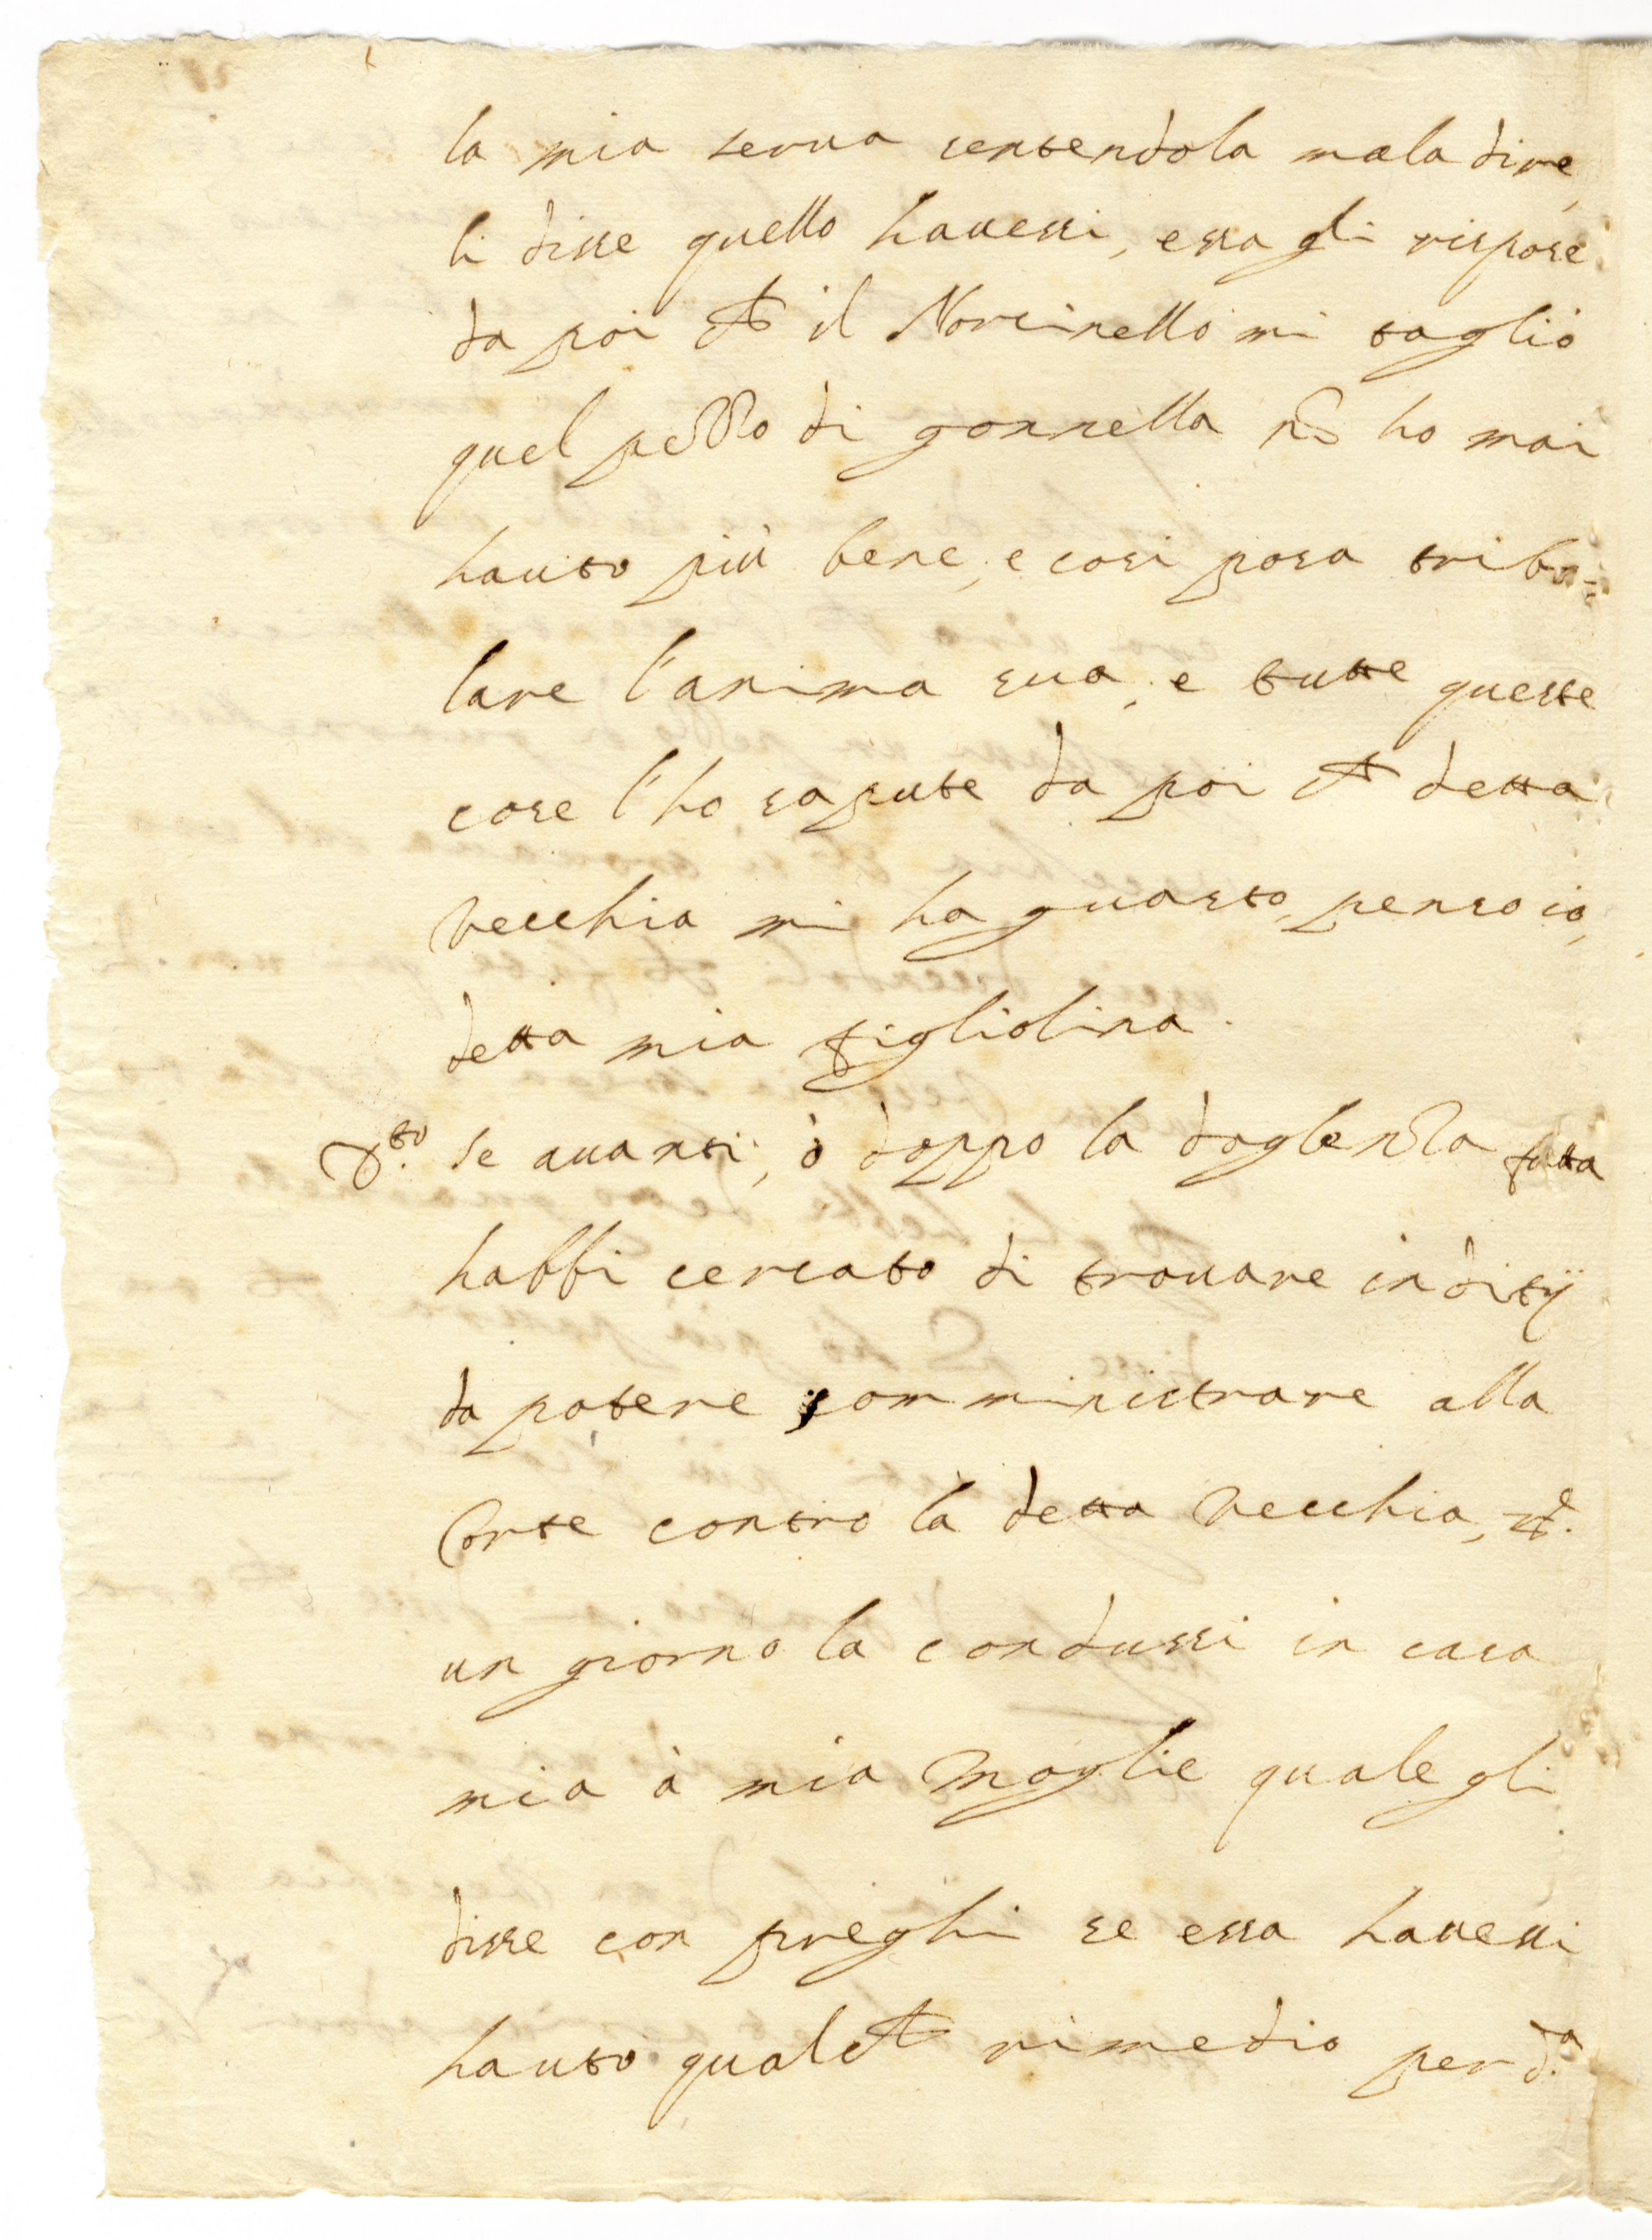 la mia serua sentendola maladire,
li disse quello hauessi, essa gli rispose
da poi che il Norcinello mi tagliò
quel pezzo di gonnella nõ ho mai
hauto più bene, e cosi possa tribu-
lare l'anima sua, e tutte queste
cose l'ho sapute da poi che detta
Vecchia mi ha guasto, penso io,
detta mia figliolina.
se auanti, ò doppo la doglenza fatta
habbi cercato di trouare inditij
da potere somministrare alla
Corte contro la detta Vecchia,
un giorno la condussi in casa
mia à mia Moglie quale gli
disse con preghi se essa hauessi
hauto qualche rimedio per d.ª